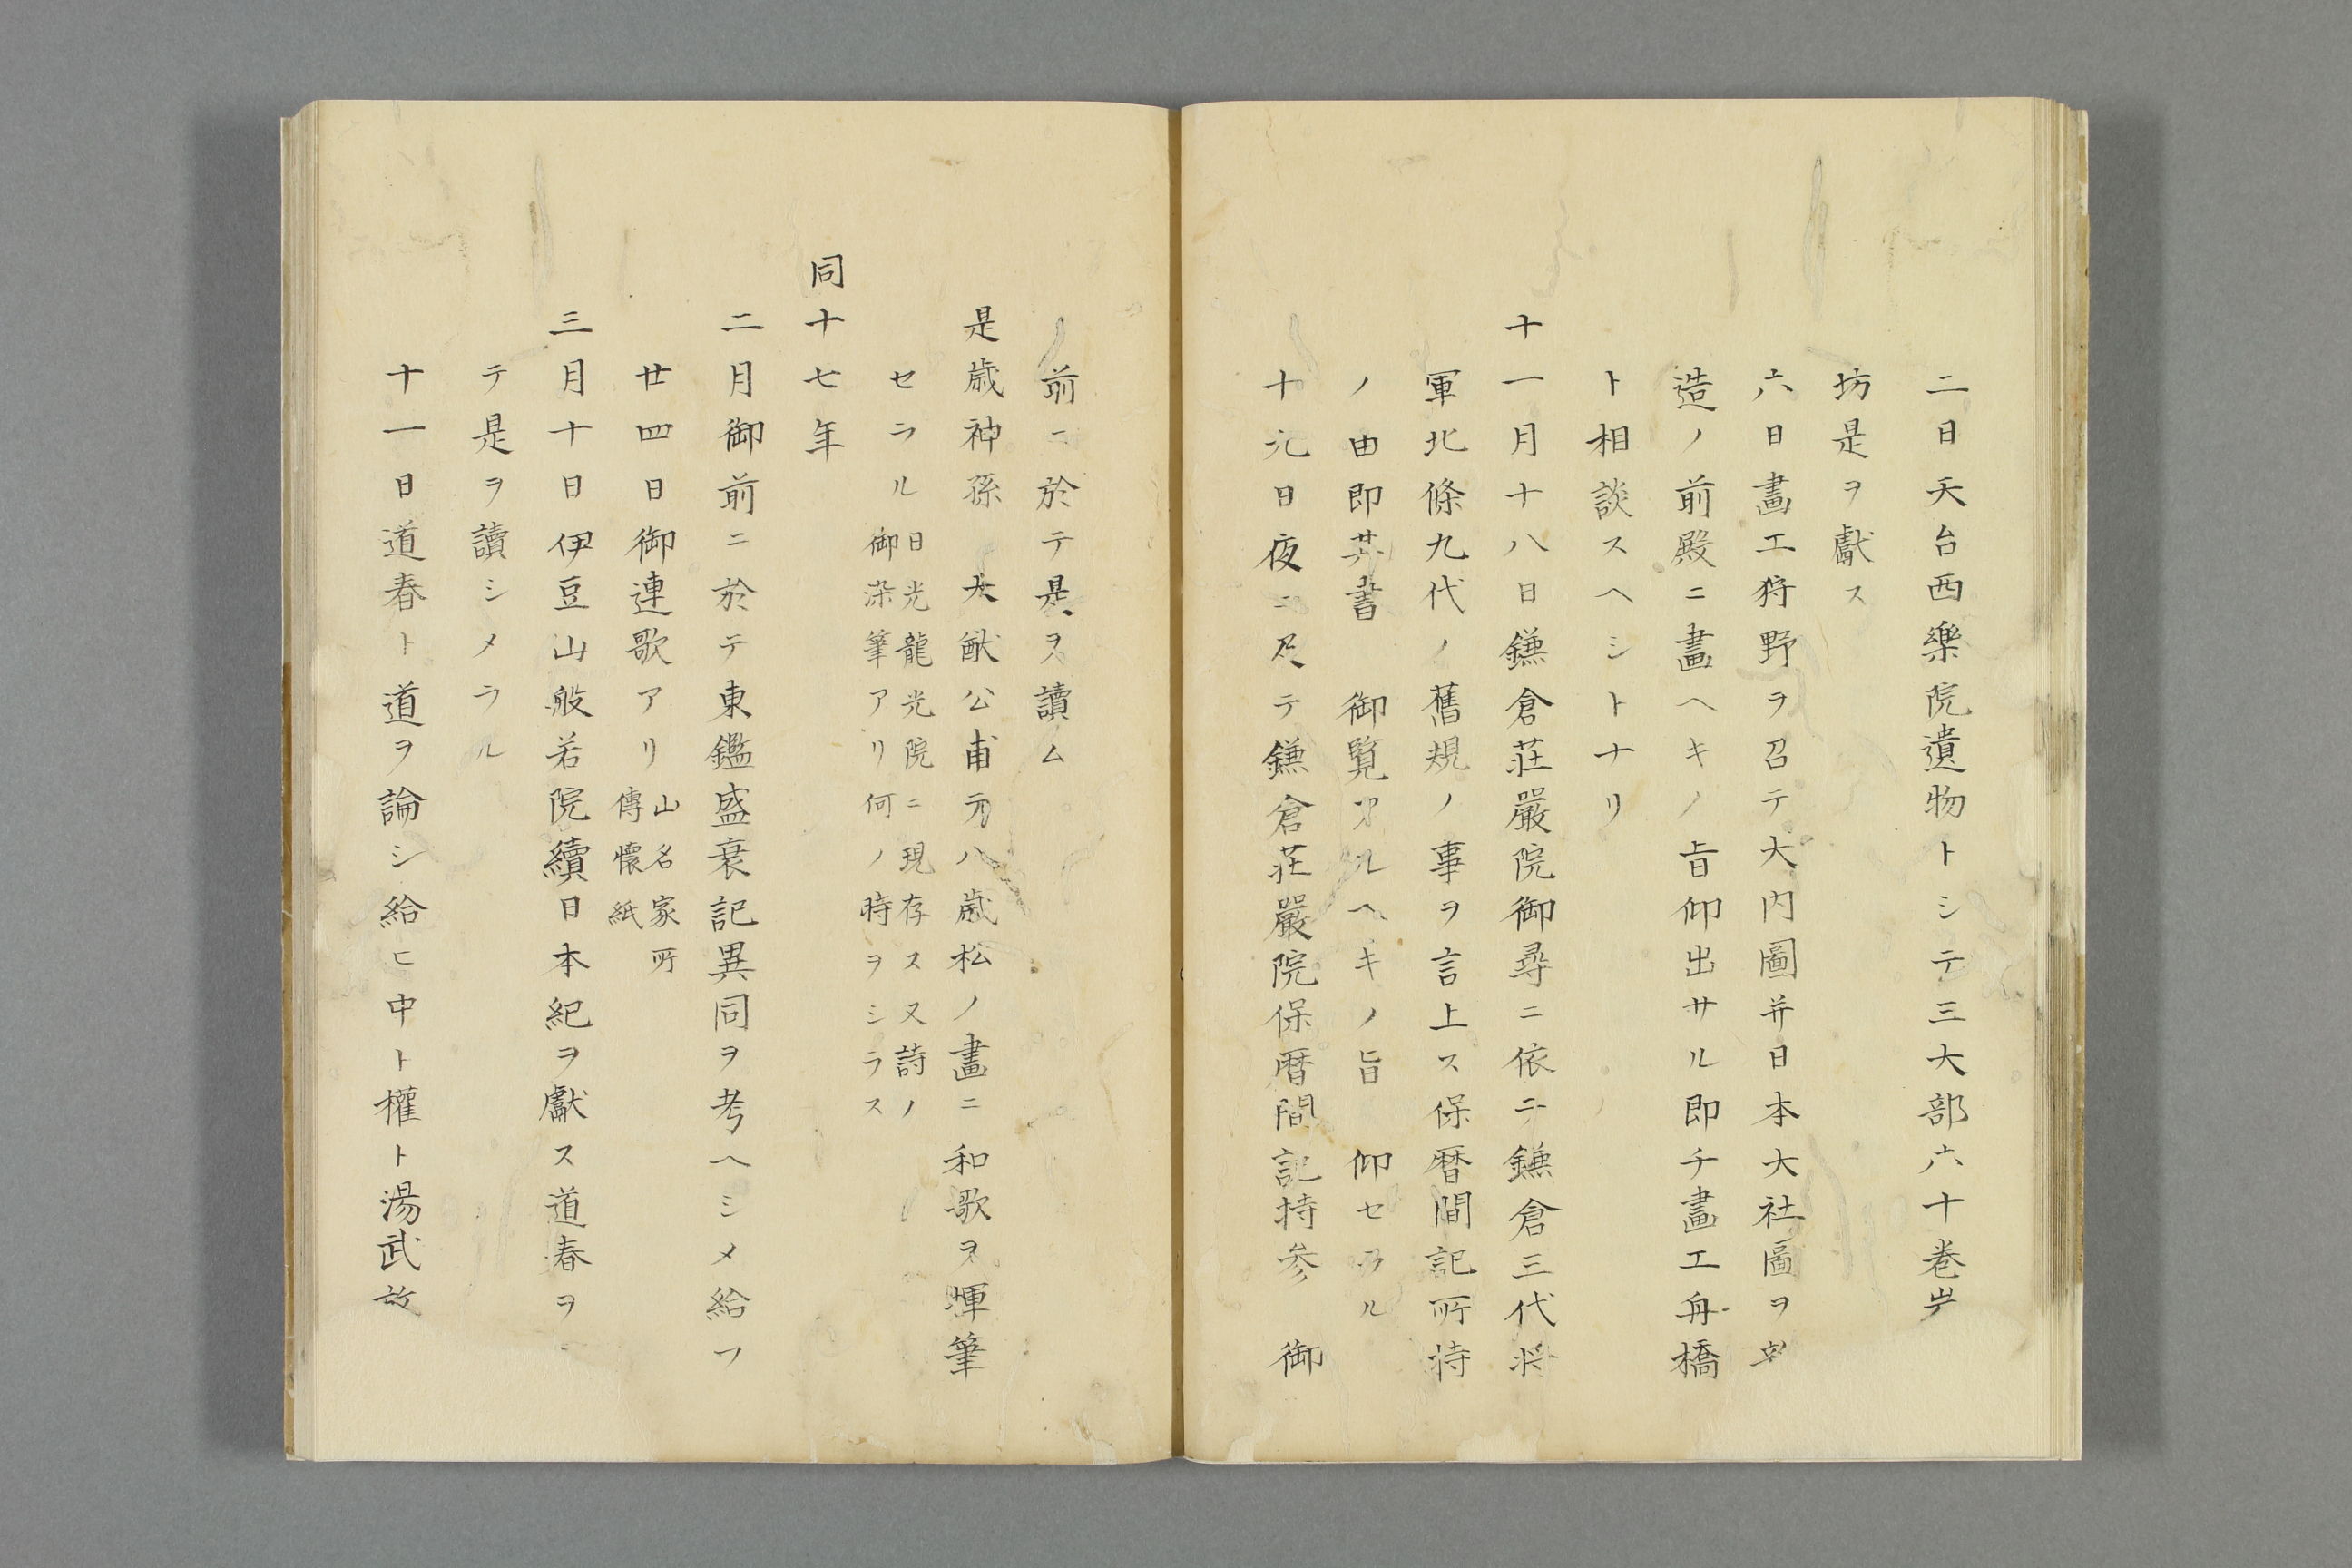 二日天台西樂院遺物トシテ三大部六十巻
坊是ヲ獻ス
六日畫工狩野ヲ召テ大内圖并日本大社圖ヲ
造ノ前殿ニ畫ヘキノ旨仰出サル即チ畫工舟橋
ト相談スヘシトナリ
十一月十八日鎌倉荘嚴院御尋ニ依テ鎌倉三代将
軍北條九代ノ舊規ノ事ヲ言上ス保暦間記所持
ノ由即其書 御覧アルヘキノ旨 仰セラル
十九日夜ニ及テ鎌倉荘嚴院保暦間記持参 御
前ニ於テ是ヲ讀ム
是歳神孫 大猷公甫テ八歳松ノ畫ニ和歌ヲ揮筆
セラル
日光龍光院ニ現存ス又詩ノ
御染筆アリ何ノ時ヲシラス
同十七年
二月御前ニ於テ東鑑盛衰記異同ヲ考ヘシメ給フ
廿四日御連歌アリ
山名家所
傳懐紙
三月十日伊豆山般若院續日本紀ヲ獻ス道春ヲ
テ是ヲ讀シメラル
十一日道春ト道ヲ論シ給ヒ中ト權ト湯武放